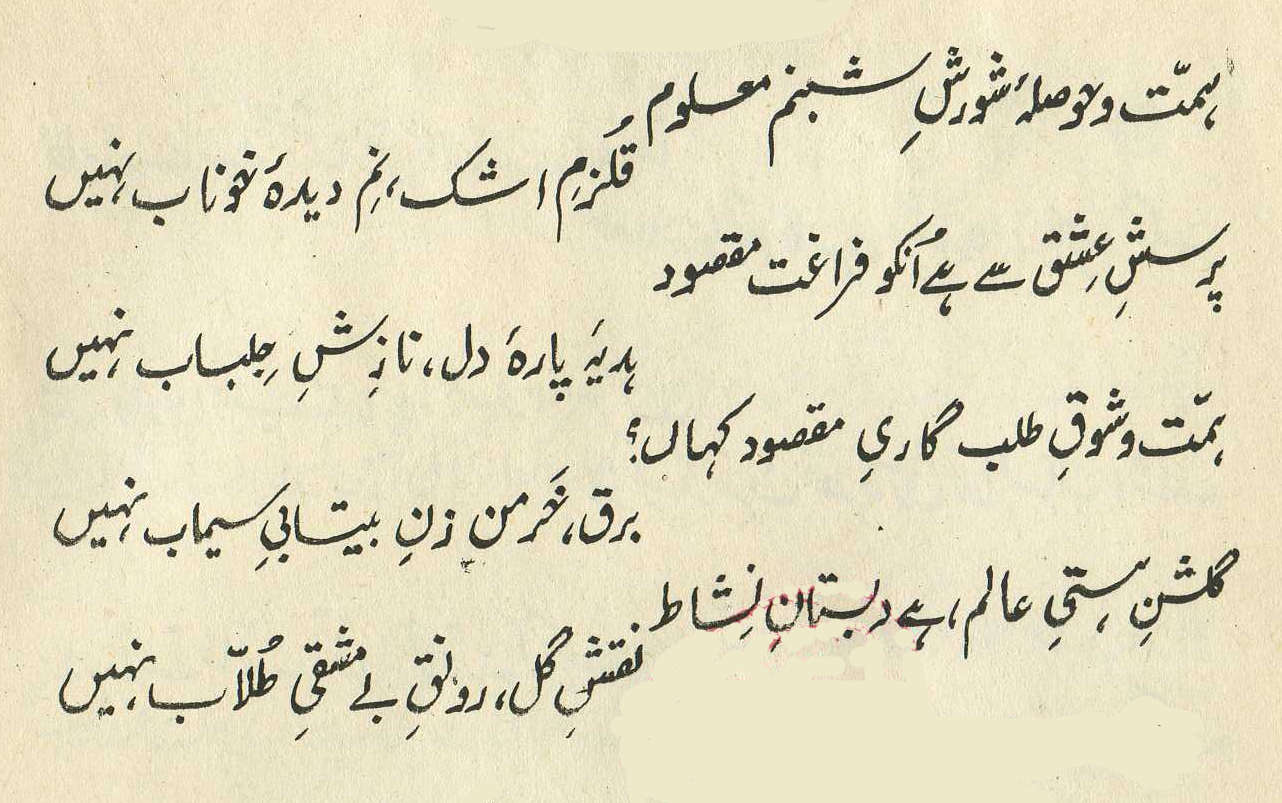 ہمّت و حوصلۂ شورشِ شبنم معلوم
قُلزمِ اشک، نِم دیدۂ خوناب نہیں
پرسشِ عِشق سے ہے اُنکو فراغت مقصود
ہدیۂ پارۂ دل، نازِشِ جِلباب نہیں
ہمّت و شوقِ طلب گاریِ مقصود کہاں؟
برق، خَرمن زنِ بیتابیِ سیماب نہیں
گلشنِ ہستیِ عالم، ہے دبستانِ نِشاط
نقشِ گل، رونقِ بے مشقیِ طُلاّب نہیں